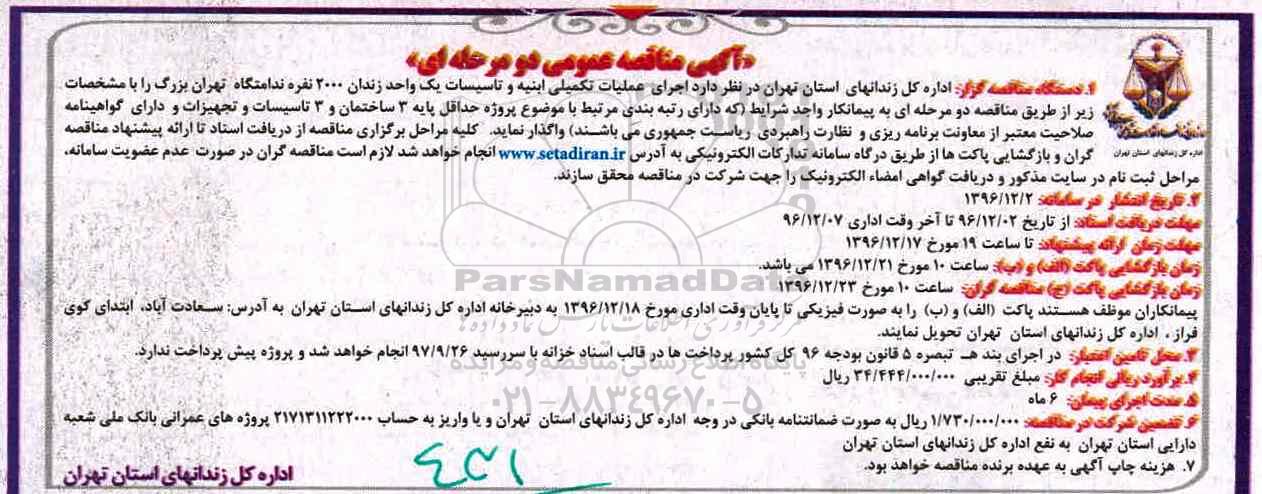 «آگهی مناقصه عمومی دو مرحله ای»
۱. دستگاه مناقصه گزار: اداره کل زندانهای استان تهران در نظر دارد اجرای عملیات تکمیلی ابنیه و تاسیسات یک واحد زندان ۲۰۰۰ نفره ندامتگاه تهران بزرگ را با مشخصات
زیر از طریق مناقصه دو مرحله ای به پیمانکار واجد شرایط (که دارای رتبه بندی مرتبط با موضوع پروژه حداقل پایه ۳ ساختمان و ۳ تاسیسات و تجهیزات و دارای گواهینامه
صلاحیت معتبر از معاونت برنامه ریزی و نظارت راهبردی ریاست جمهوری می باشند) واگذار نماید. کلیه مراحل برگزاری مناقصه از دریافت اسناد تا ارائه پیشنهاد مناقصه
گران و بازگشایی پاکت ها از طریق درگاه سامانه تدارکات الکترونیکی به آدرس www.setadiran.ir انجام خواهد شد لازم است مناقصه گران در صورت عدم عضویت سامانه،
اداره کل زندانهای استان تهران
مراحل ثبت نام در سایت مذکور و دریافت گواهی امضاء الکترونیک را جهت شرکت در مناقصه محقق سازند.
۲. تاریخ انتشار در سامانه: ۱۳۹۶/۱۲/۲
مهلت دریافت اسناد: از تاریخ ۹۶/۱۲/۰۲ تا آخر وقت اداری ۹۶/۱۲/۰۷
مهلت زمان ارائه پیشنهاد: تا ساعت ۱۹ مورخ ۱۳۹۶/۱۲/۱۷
زمان بازگشایی پاکت (الف) و (ب): ساعت ۱۰ مورخ ۱۳۹۶/۱۲/۲۱ می باشد.
زمان بازگشایی پاکت (ج) مناقصه گران: ساعت ۱۰ مورخ ۱۳۹۶/۱۲/۲۳
ParsNamadData
پیمانکاران موظف هستند پاکت (الف) و (ب) را به صورت فیزیکی تا پایان وقت اداری مورخ ۱۳۹۶/۱۲/۱۸ به دبیرخانه اداره کل زندانهای استان تهران به آدرس: سعادت آباد، ابتدای کوی
فراز ، اداره کل زندانهای استان تهران تحویل نمایند.
۳. محل تامین اعتبار: در اجرای بند هـ تبصره ۵ قانون بودجه ۹۶ کل کشور پرداخت ها در قالب اسناد خزانه با سررسید ۹۷/۹/۲۶ انجام خواهد شد و پروژه پیش پرداخت ندارد.
پایگاه اطلاع رسانی مناقصه و مزایده
۴. برآورد ریالی انجام کار: مبلغ تقریبی ۳۴/۴۴۴/۰۰۰/۰۰۰ ریال
۵. مدت اجرای پیمان: ۶ ماه
۰۲۱-۸۸۳۴۹۶۷۰-۵
۶. تضمین شرکت در مناقصه: ۱/۷۳۰/۰۰۰/۰۰۰ ریال به صورت ضمانتنامه بانکی در وجه اداره کل زندانهای استان تهران و یا واریز به حساب ۲۱۷۱۳۱۱۲۲۲۰۰۰ پروژه های عمرانی بانک ملی شعبه
دارایی استان تهران به نفع اداره کل زندانهای استان تهران
۷. هزینه چاپ آگهی به عهده برنده مناقصه خواهد بود.
اداره کل زندانهای استان تهران